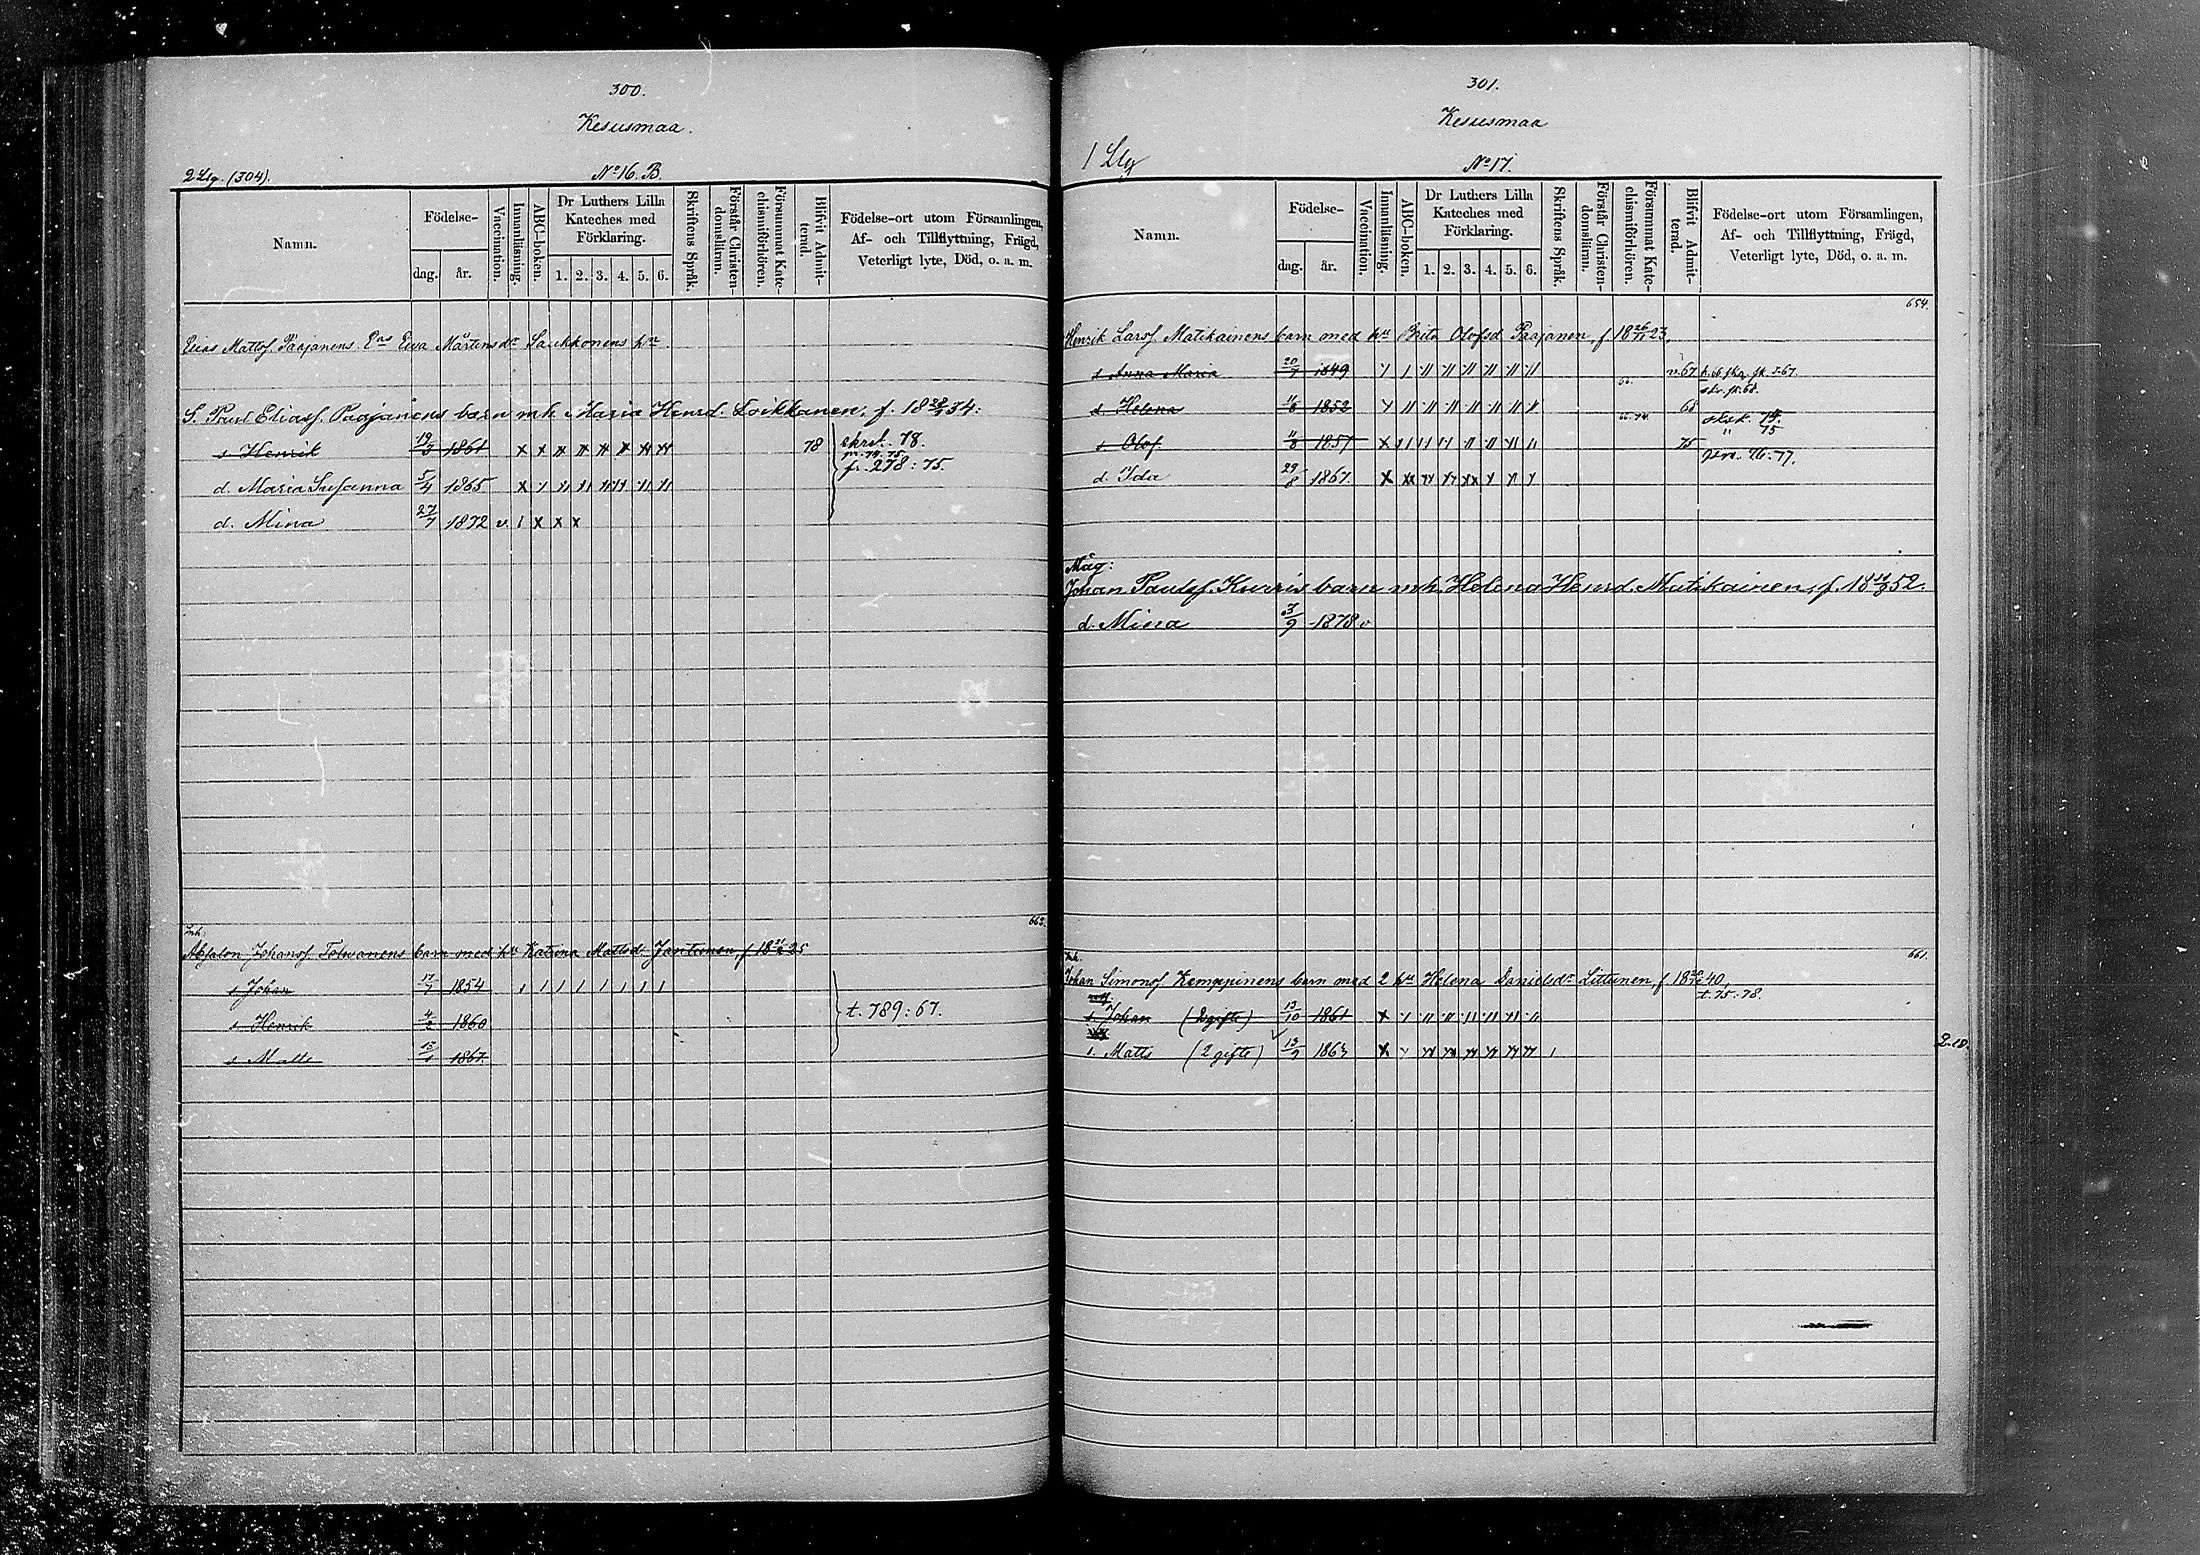 300.
Kesusmaa.
2 Llg. (304).
No 16. B.
Namn.
Födelse-
dag.
år.
Vaccination.
Innanläsning.
ABC-boken.
Dr Luthers Lilla Kateches med Förklaring.
1. 2. 3. 4. 5. 6.
Skriftens Språk.
Förstår Christendomsläran.
Försummat Katechismiförhören.
Blifvit Admitterad.
Födelse-ort utom Församlingen,
Af- och Tillflyttning, Frägd,
Veterligt lyte, Död, o. a. m.
Elias Mattsf. Paajanens Eva Mårtensdr Saukkonens
S. Paul Eliasf. Paajanens barn m h. Maria Henrd. Loikkanen, f. 18 28/1 34:
s Henrik 19/3 1861 x x 78 skrst. 78.
fr. 278: 75.
d. Maria Susanna 5/4 1865 x
d. Mina 27/7 1872 v. 1 x x x
662.
Inh:
Absalon Johansf Tolwanens barn med hu Katrina Mattsdr Jantunen, f 18 25
s Johan 17/7 1854
s Henrik 4/2 1860 t. 789: 67.
s Matts 13/1 1867
301.
Kesusmaa
1 Llg
No 17.
Namn.
Födelse-
dag.
år.
Vaccination.
Innanläsning.
ABC-boken.
Dr Luthers Lilla Kateches med Förklaring.
1. 2. 3. 4. 5. 6.
Skriftens Språk.
Förstår Christendomsläran.
Försummat Katechismiförhören.
Blifvit Admitterad.
Födelse-ort utom Församlingen,
Af- och Tillflyttning, Frägd,
Veterligt lyte, Död, o. a. m.
654.
Henrik Larsf. Matikainens barn med hu Brita Olofsd Paajanen, f 18 26/11 23,
d Anna Maria 20/7 1849 67
d Helena 11/8 1852 68
s Olof 11/8 1857 75
76-77.
d. Ida 29/8 1867
Måg:
Johan Paulsf. Kurris barn m h. Helena Henrd. Matikainen, f. 18 11/8 52.
d. Mina 3/9 1878 v
661.
Inh.
Johan Simonsf Kemppinens barn med 2 hu Helena Danielsdr Littunen, f 18 40,
t. 75: 78.
s. Johan (2 gifte) 13/10 1861
s. Matts (2 gifte) 13/9 1863